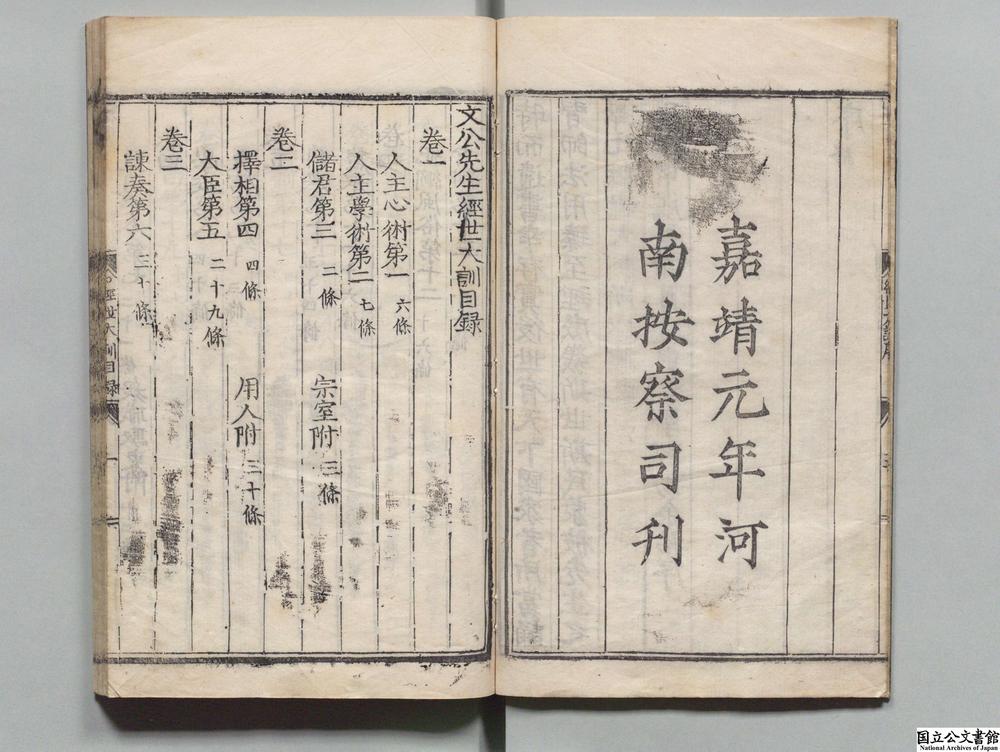 嘉靖元年河
南按察司刊
文公先生經世大訓目録
卷一
人主心術第一 六條
人主學術第二 七條
儲君第三 二條 宗室附 三條
卷二
擇相第四 四條 用人附 三十條
大臣第五 二十九條
卷三
諫奏第六 三十條
經世大訓目録 一
国立公文書館
National Archives of Japan